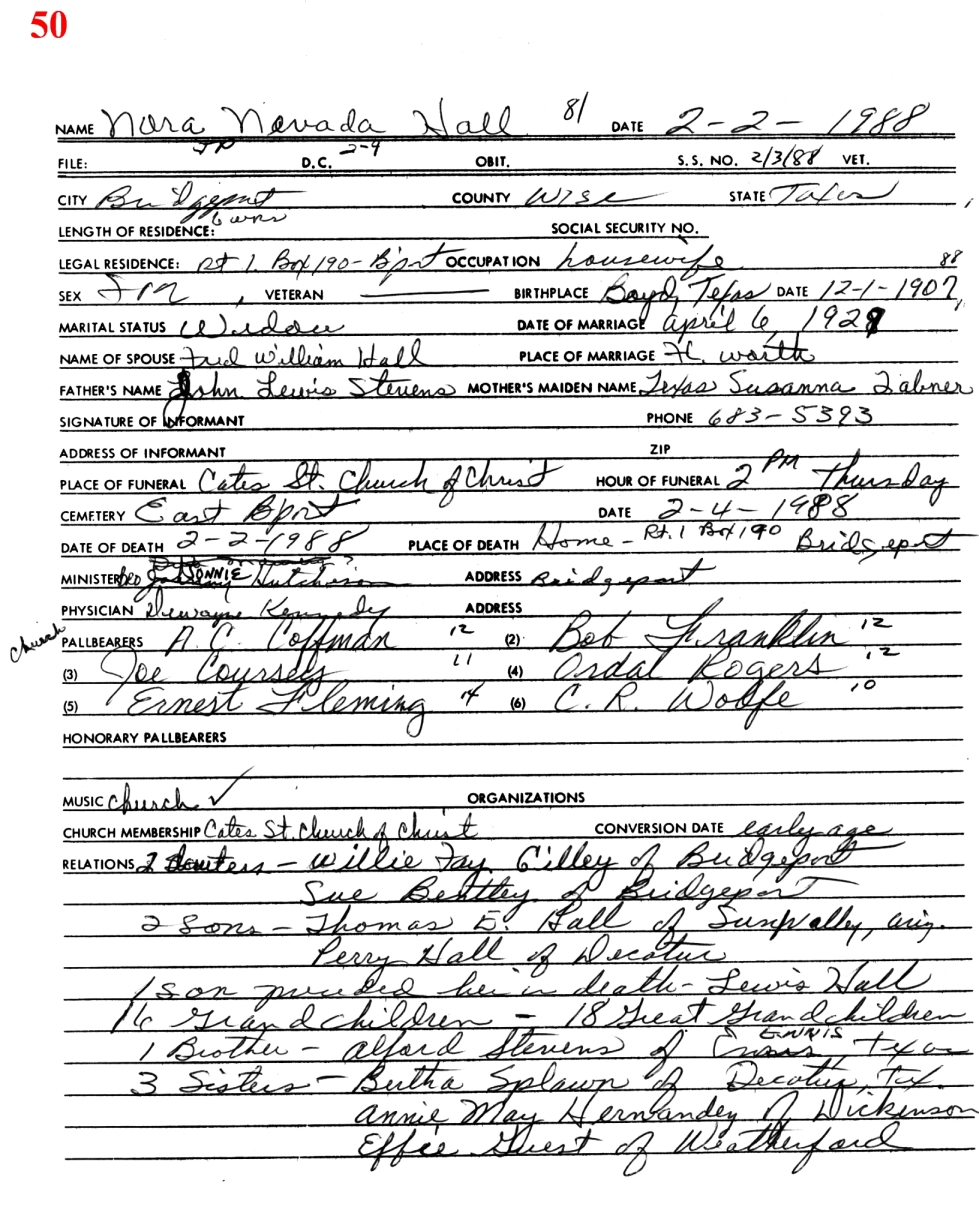 50
NAME Nora Nevada Hall 81 DATE 2-2-1988
FILE: D.C. 2-9 OBIT. S.S. NO. 2/3/88 VET.
CITY Bridgeport COUNTY Wise STATE Texas
LENGTH OF RESIDENCE: 6 wns SOCIAL SECURITY NO.
LEGAL RESIDENCE: Rt 1. Box 190 - B'prt OCCUPATION housewife 88
SEX VETERAN BIRTHPLACE Boyd, Texas DATE 12-1-1907
MARITAL STATUS Widow DATE OF MARRIAGE April 6, 1929
NAME OF SPOUSE Fred William Hall PLACE OF MARRIAGE Ft. Worth
FATHER'S NAME John Lewis Stevens MOTHER'S MAIDEN NAME Texas Susanna Tabner
SIGNATURE OF INFORMANT PHONE 683-5393
ADDRESS OF INFORMANT ZIP
PLACE OF FUNERAL Cates St. Church of Christ HOUR OF FUNERAL 2 PM Thursday
CEMETERY East Bport DATE 2-4-1988
DATE OF DEATH 2-2-1988 PLACE OF DEATH Home - Rt. 1 Box 190 Bridgeport
MINISTER Hutchison ADDRESS Bridgeport
PHYSICIAN Dewayne Kennedy ADDRESS
Church PALLBEARERS A. C. Coffman 12 (2) Bob Franklin 12
(3) Joe Coursey 11 (4) Ordal Rogers 12
(5) Ernest Fleming 14 (6) C. R. Wolfe 10
HONORARY PALLBEARERS
MUSIC Church ✓ ORGANIZATIONS
CHURCH MEMBERSHIP Cates St. Church of Christ CONVERSION DATE early age
RELATIONS 2 - Willie Fay Gilley of Bridgeport
Sue Bentley of Bridgeport
2 Sons - Thomas E. Hall of Sunvalley, Ariz.
Perry Hall of Decatur
1 son preceded her in death - Lewis Hall
16 Grandchildren - 18 Great Grandchildren
1 Brother - Alford Stevens of ENNIS, Texas
3 Sisters - Bertha Splawn of Decatur, Tex.
Annie May Hernandez of Dickinson
Effie Guest of Weatherford